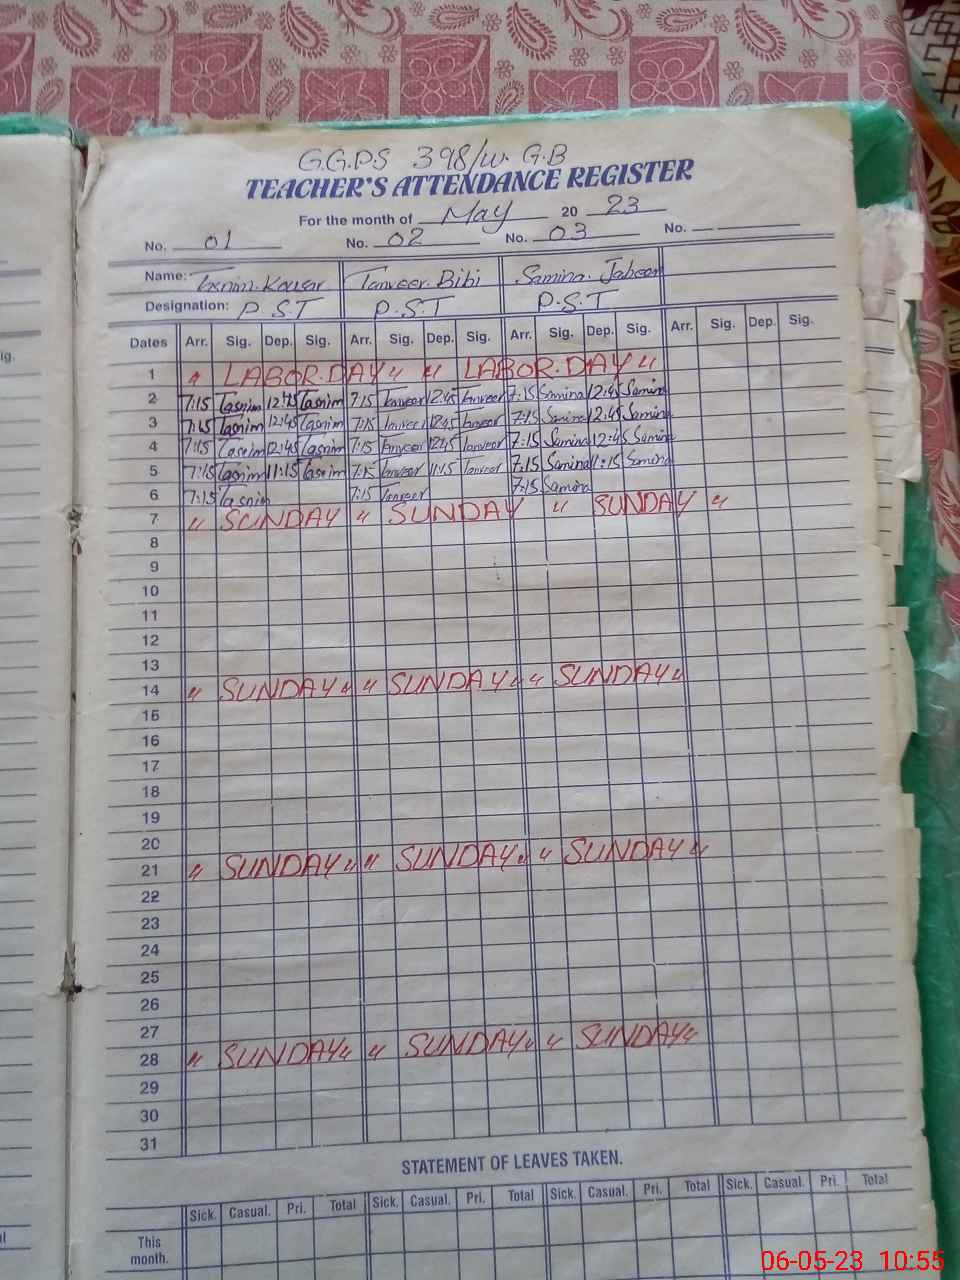 G.G.P.S 398/w. G.B
TEACHER'S ATTENDANCE REGISTER
For the month of May 20 23
No. 01 No. 02 No. 03 No.
Name: Tanveer. Bibi Samina. Jabeen
Designation: P.S.T P.S.T P.S.T
Dates Arr. Sig. Dep. Sig. Arr. Sig. Dep. Sig. Arr. Sig. Dep. Sig. Arr. Sig. Dep. Sig.
1 " LABOR.DAY " " LABOR.DAY "
2 7:15 Tasnim 12:45 Tasnim 7:15 Tanveer 12:45 Tanveer 7:15 Samina 12:45 Samina
3 7:15 Tasnim 12:45 Tasnim 7:15 Tanveer 12:45 Tanveer 7:15 Samina 12:45 Samina
4 7:15 Tasnim 12:45 Tasnim 7:15 Tanveer 12:45 Tanveer 7:15 Samina 12:45 Samina
5 7:15 Tasnim 11:15 Tasnim 7:15 Tanveer 11:15 Tanveer 7:15 Samina 11:15 Samina
6 7:15 Tasnim 7:15 Tanveer 7:15 Samina
7 " SUNDAY " SUNDAY " SUNDAY "
8
9
10
11
12
13
14 " SUNDAY " " SUNDAY " " SUNDAY "
15
16
17
18
19
20
21 " SUNDAY " " SUNDAY " " SUNDAY "
22
23
24
25
26
27
28 " SUNDAY " " SUNDAY " " SUNDAY "
29
30
31
STATEMENT OF LEAVES TAKEN.
Sick. Casual. Pri. Total Sick. Casual. Pri. Total Sick. Casual. Pri. Total Sick. Casual. Pri. Total
This
month.
06-05-23 10:55